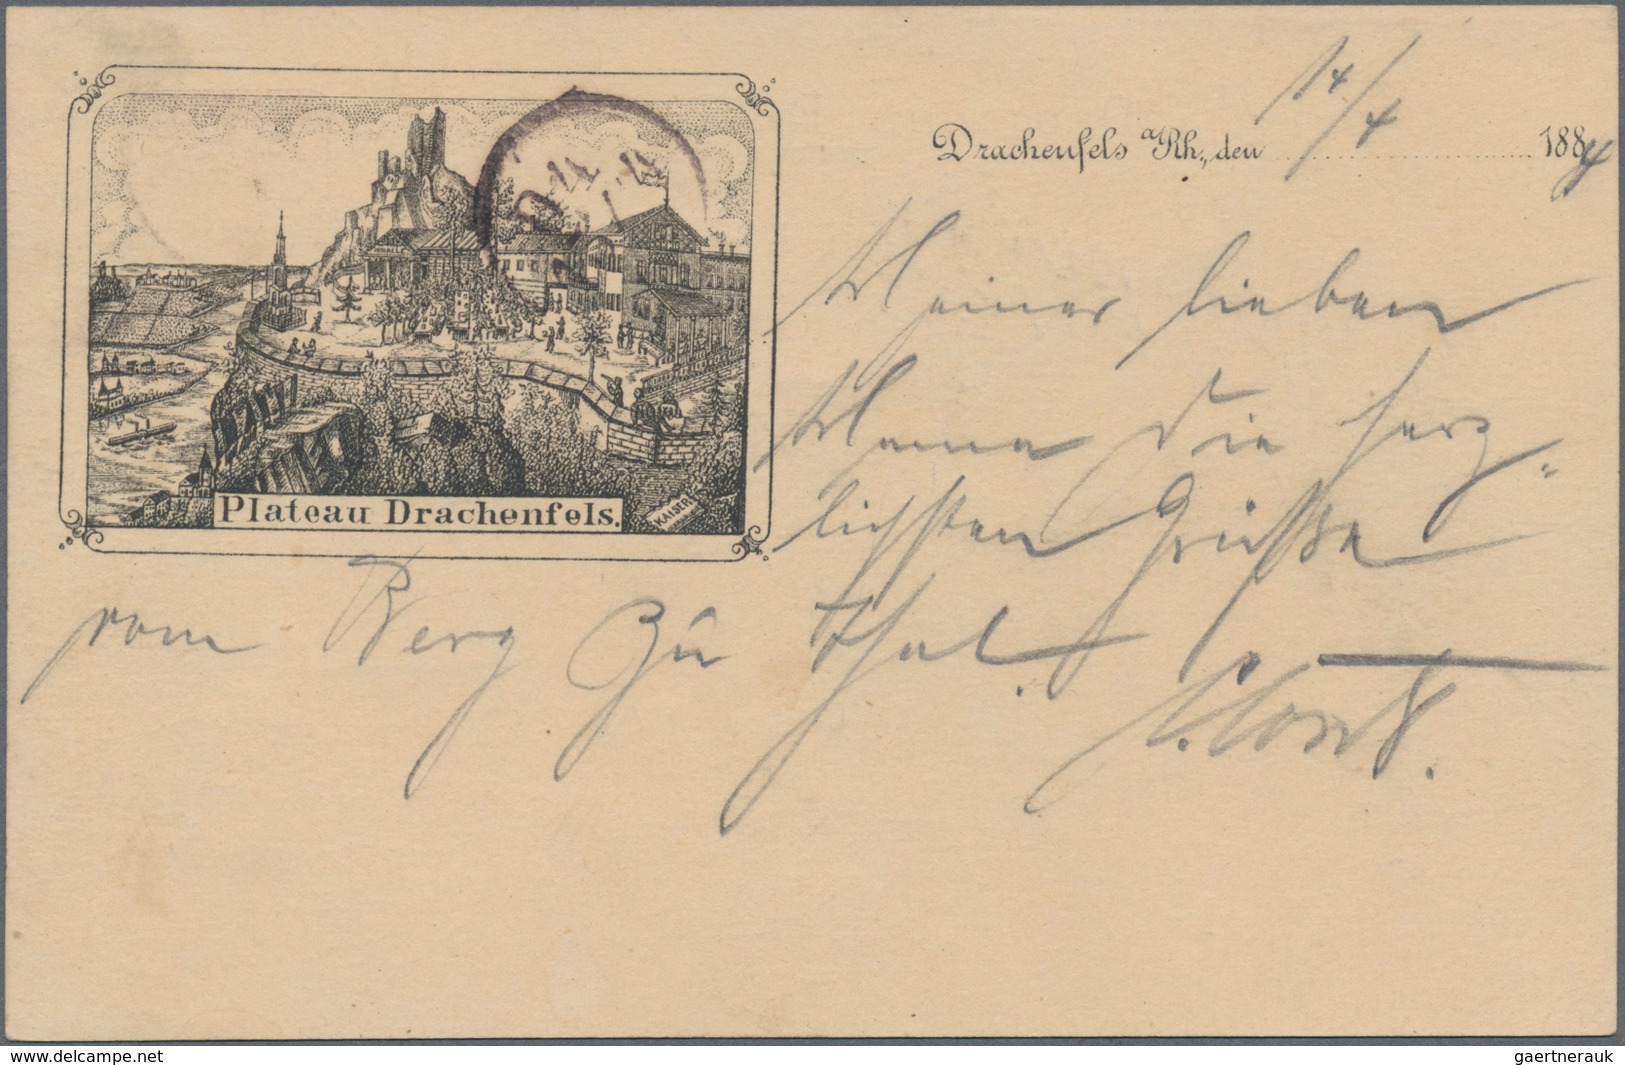 14/4
Drachenfels a/Rh., den 1884
Meiner lieben
Mama die herz-
lichsten Grüße
vom Berg zu Thal.
Plateau Drachenfels.
KAISER
delcampe.net
gaertnerauk